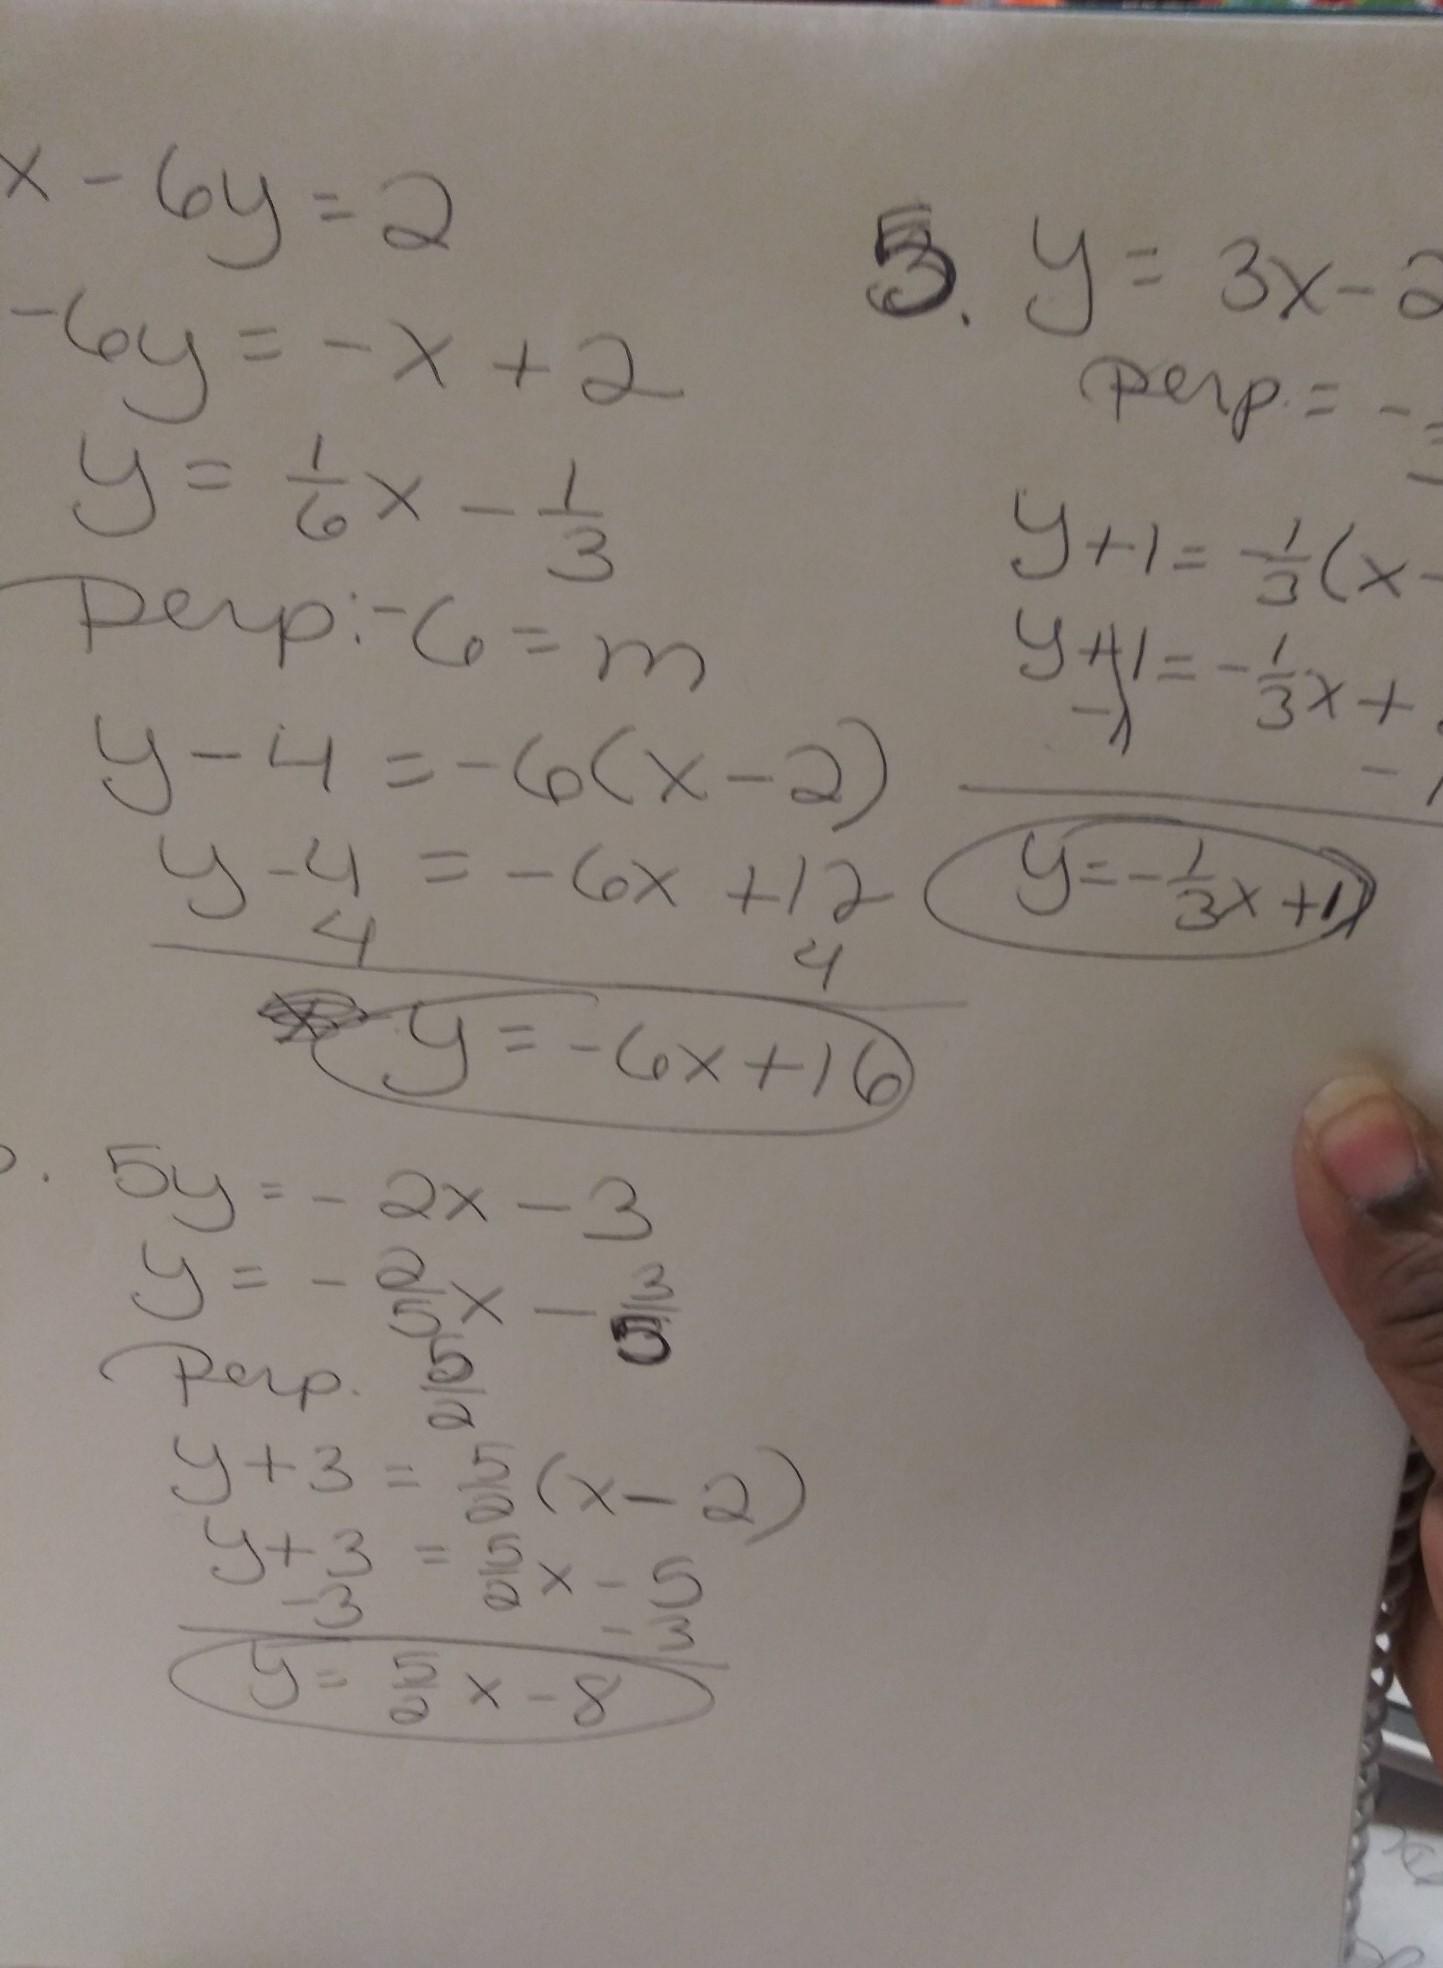 x - 6y = 2
-6y = -x + 2
y = 1/6 x - 1/3
Perp: -6 = m
y - 4 = -6(x - 2)
y - 4 = -6x + 12
4 4
y = -6x + 16
5y = - 2x - 3
y = - 2/5 x - 3/5
Perp. 5/2
y + 3 = 5/2 (x - 2)
y + 3 = 5/2 x - 5
-3 -3
y = 5/2 x - 8
5. y = 3x - 2
Perp. = -
y + 1 = -1/3 (x -
y + 1 = -1/3 x +
-1 -1
y = -1/3 x + 1